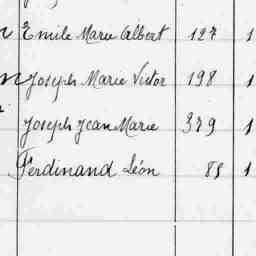 Emile Marie Albert 127 1
Joseph Marie Victor 198 1
Joseph Jean Marie 379 1
Ferdinand Léon 85 1